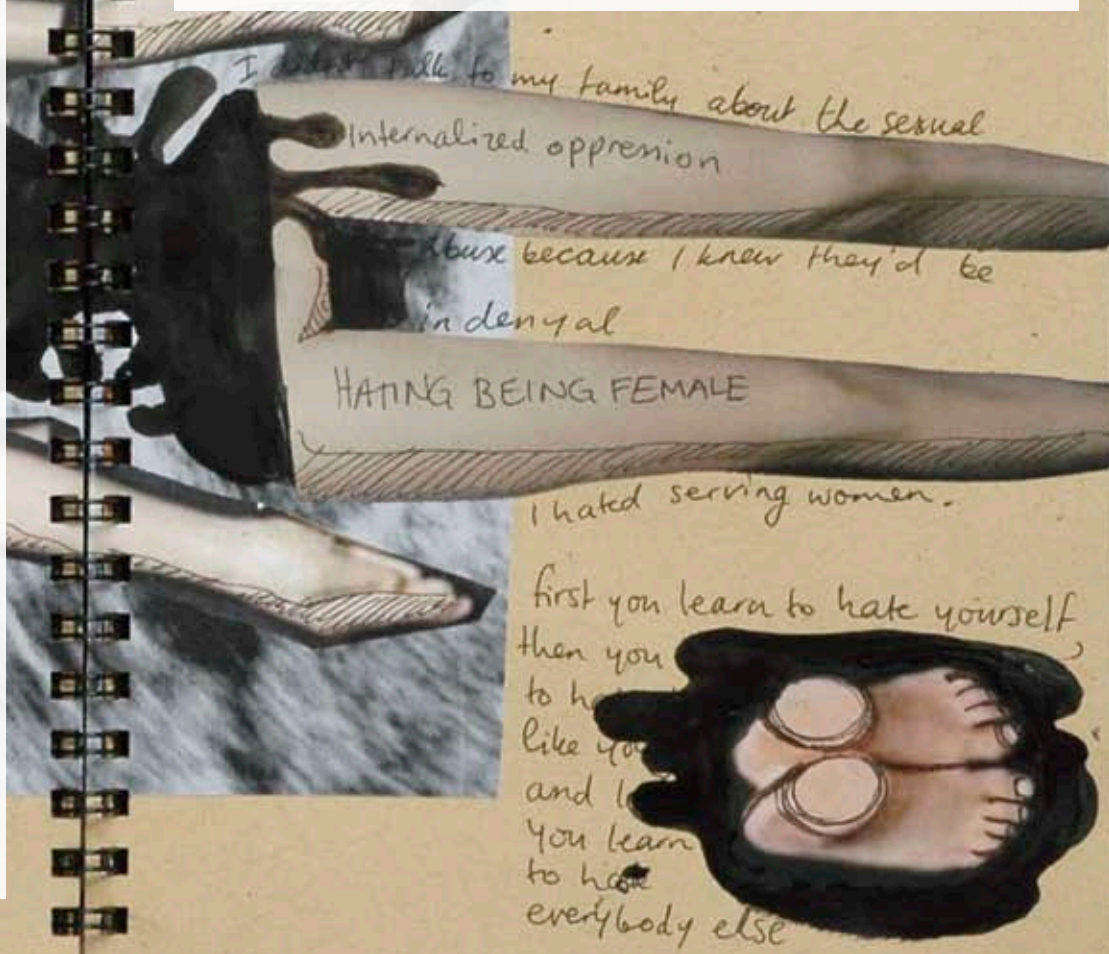 I didn't talk to my family about the sexual
Internalized oppression
abuse because I knew they'd be
in denyal
HATING BEING FEMALE
I hated serving women.
first you learn to hate yourself,
then you
to
like
and
You learn
to hate
everybody else